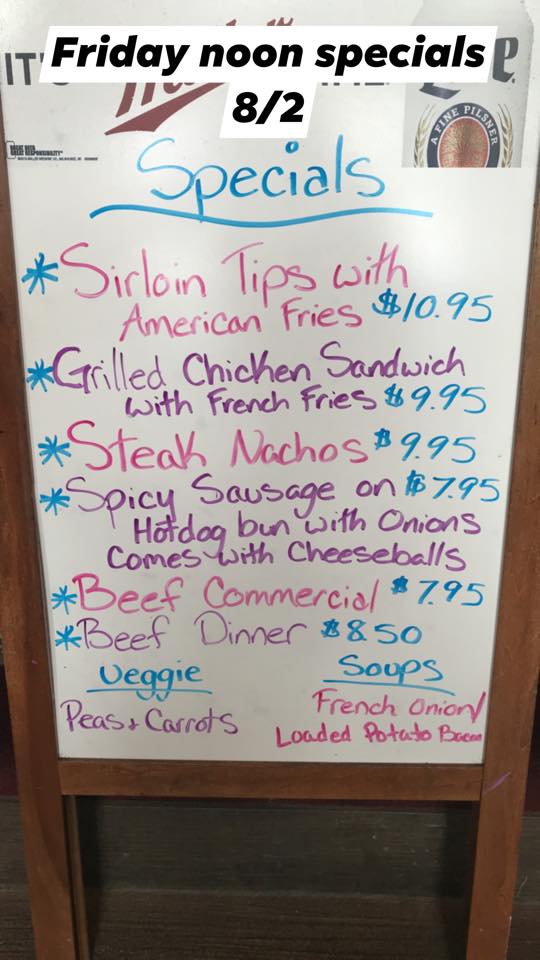 Friday noon specials
8/2
IT'S
Lite
A FINE PILSNER
GREAT BEER
GREAT RESPONSIBILITY
Specials
* Sirloin Tips with
American Fries $10.95
* Grilled Chicken Sandwich
with French Fries $9.95
* Steak Nachos $9.95
* Spicy Sausage on $7.95
Hotdog bun with Onions
Comes with Cheeseballs
* Beef Commercial $7.95
* Beef Dinner $8.50
Veggie
Soups
Peas + Carrots
French Onion/
Loaded Potato Bacon